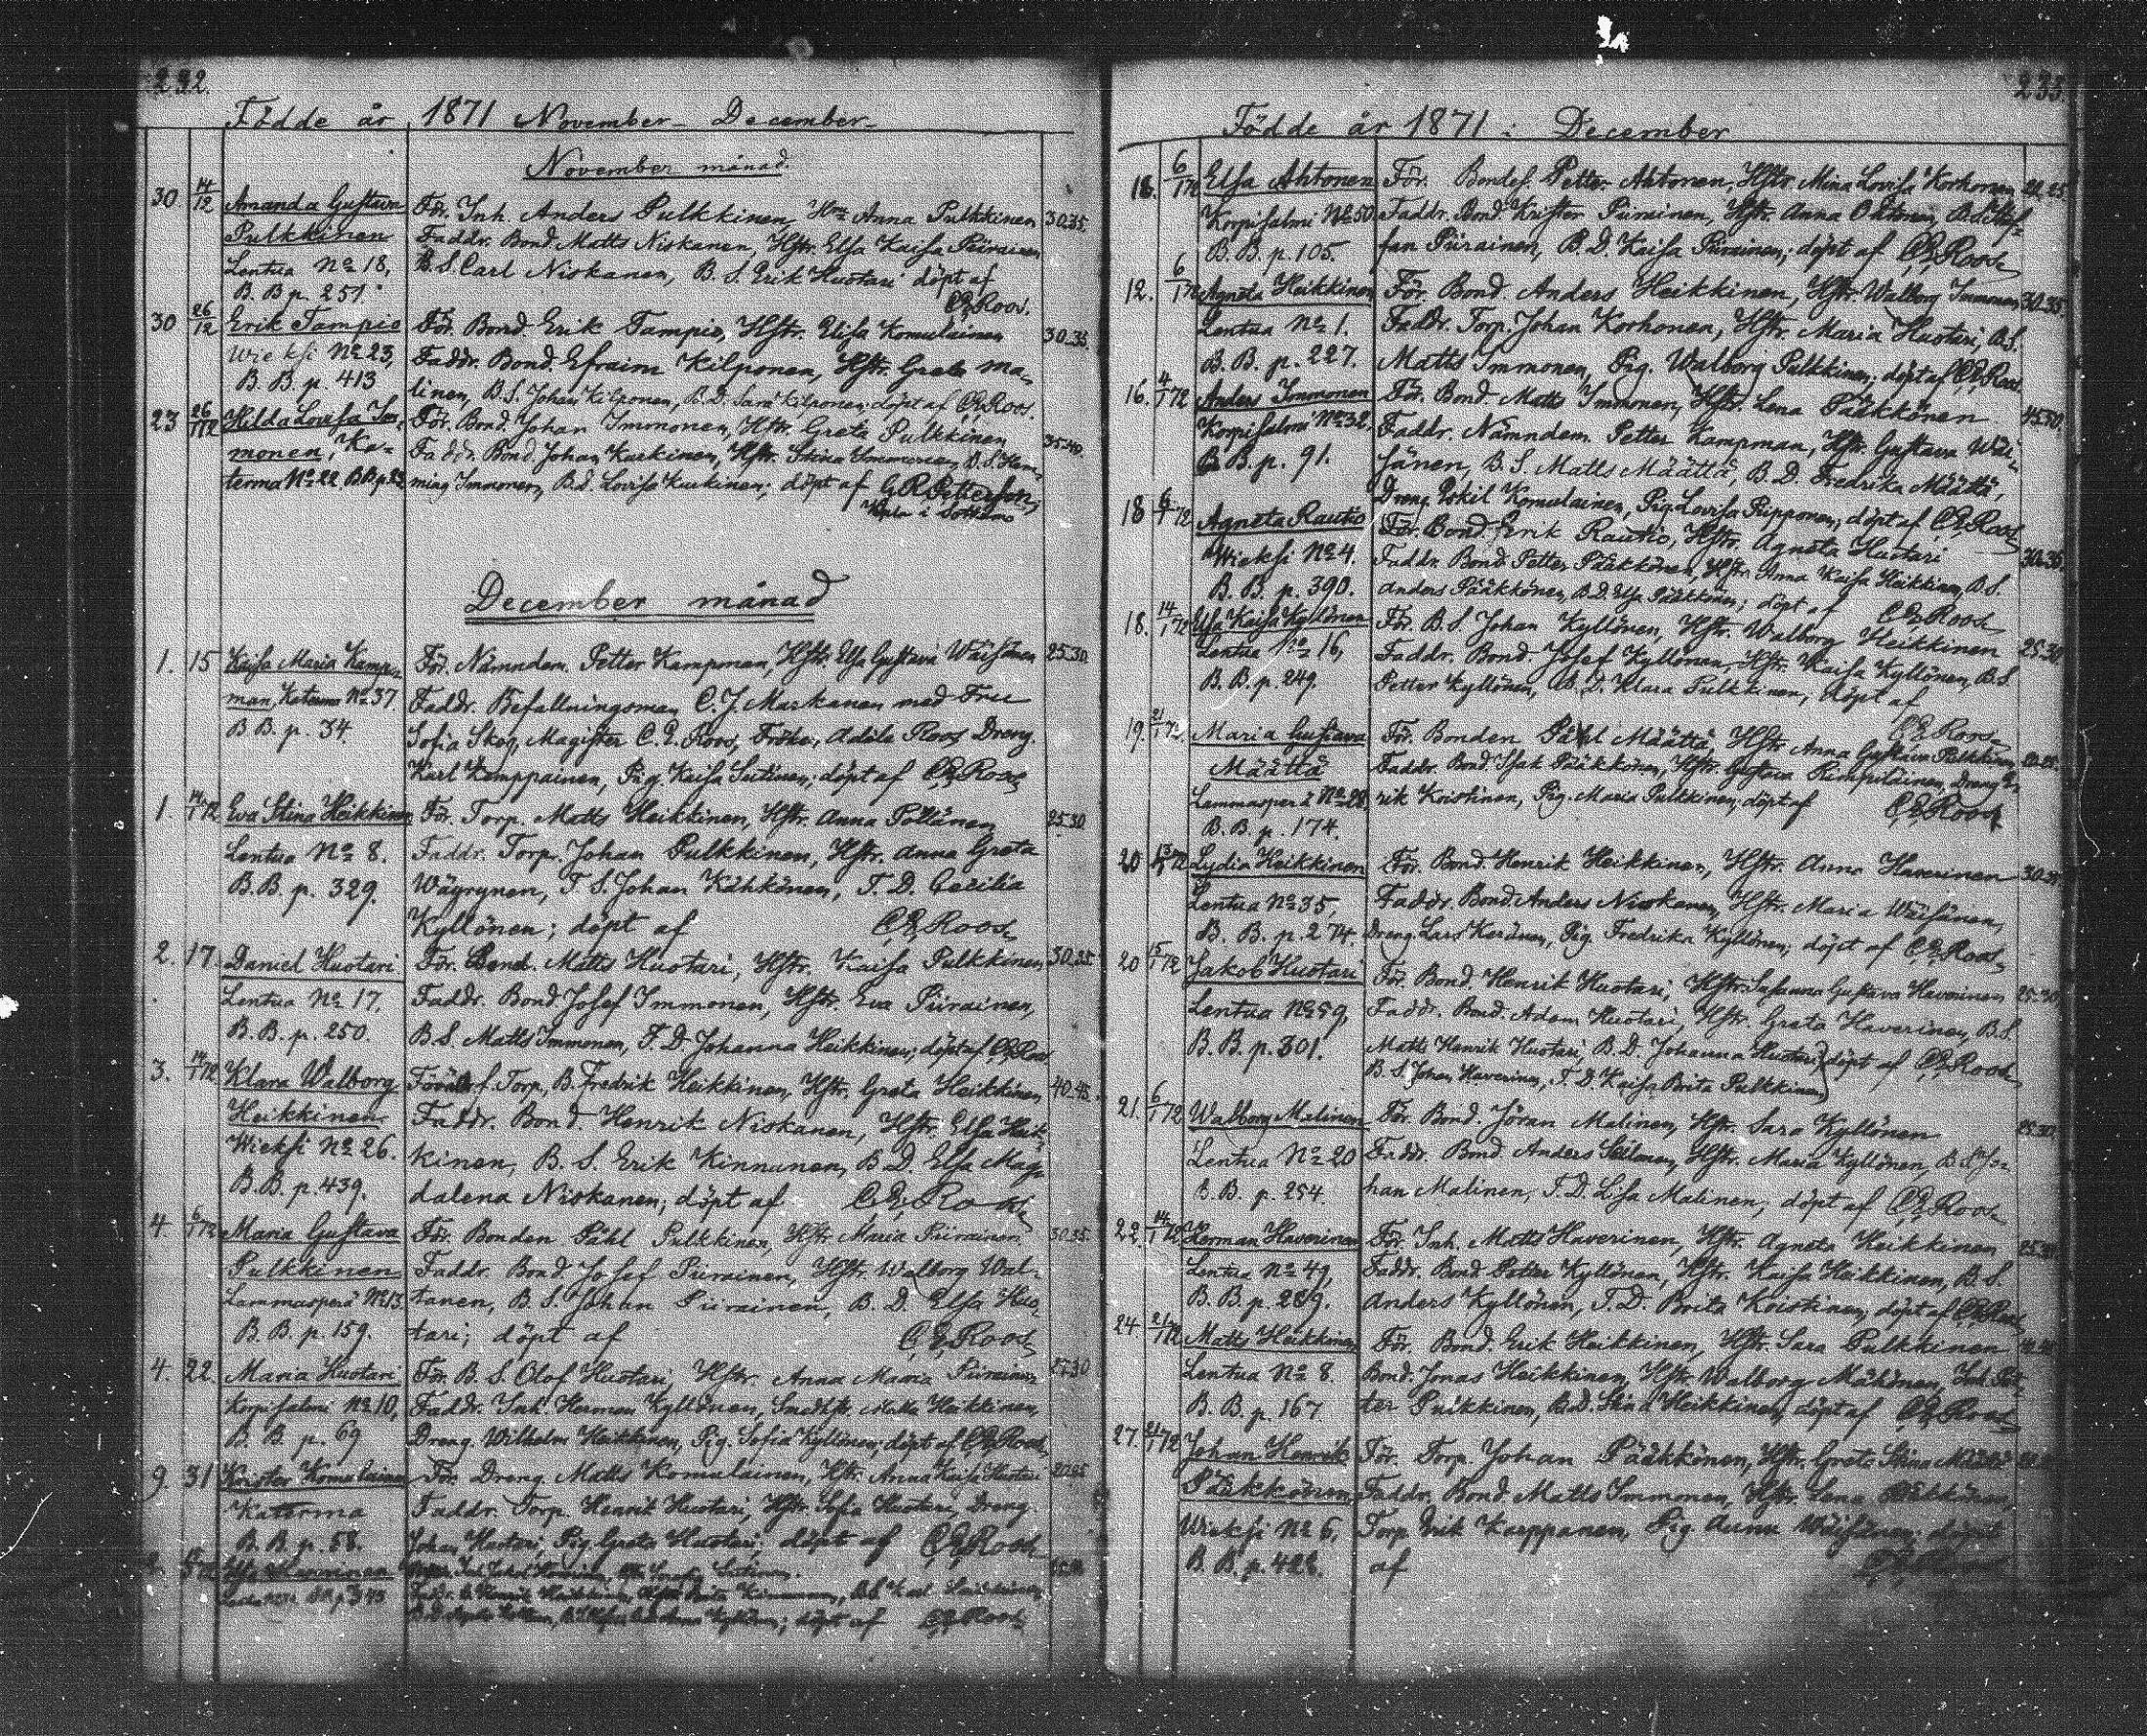 232.
Födde år 1871 November – December –
November månad.
30 14/12 Amanda Gustava För. Inh. Anders Pulkkinen, Hru Anna Pulkkinen 30.35.
Pulkkinen Faddr. Bond. Matts Niskanen, Hstr. Elsa Kaisa Piirainen
Lentua No 18, B. S. Carl Niskanen, B. S. Erik Huotari döpt af
B. B p. 251. C. E. Roos.
30 26/12 Erik Tampio För. Bond. Erik Tampio, Hstr. Elisa Komulainen 30.35.
Wieksi No 23, Faddr. Bond. Efraim Kilponen, Hstr. Greta Ma-
B. B. p. 413 linen, B. S. Johan Kilponen, B. D. Sara Kilponen; döpt af C. E. Roos.
23 26/1 72 Hilda Lovisa Im- För. Bond. Johan Immonen, Hstr. Greta Pulkkinen 35-40.
monen, Ka- Faddr. Bond. Johan Kurkinen, Hstr. Stina Immonen, B. S. Hem-
terma No 22. BB p. ming Immonen, B. d. Lovisa Kurkinen; döpt af G R Petterson,
i Sotkamo
December månad
1. 15 Kaisa Maria Kamp- För. Nämndem. Petter Kamponen, Hstr. Elsa Gustava Wäisänen 25.30.
man, Katerma No 37. Faddr. Befallningsman C. J. Markanen med Fru
B B. p. 34. Sofia Skog, Magister C. E. Roos, Fröken Adèle Roos Dreng.
Karl Kemppainen, Pig. Kaisa Sutinen; döpt af C. E. Roos
1. 14/1 72 Eva Stina Heikkinen För. Torp. Matts Heikkinen, Hstr. Anna Pöllänen 25.30
Lentua No 8. Faddr. Torp. Johan Pulkkinen, Hstr. Anna Greta
B. B. p. 329. Wäyrynen, T. S. Johan Kähkönen, T. D. Cecilia
Kyllönen; döpt af C. E. Roos
2. 17. Daniel Huotari För. Bond. Matts Huotari, Hstr. Kaisa Pulkkinen 30.35.
Lentua No 17, Faddr. Bond Josef Immonen, Hstr. Eva Piirainen,
B. B. p. 250. B. S. Matts Immonen, T. D. Johanna Heikkinen; döpt af C. E. Roos
3. 14/1 72 Klara Walborg Torp. B. Fredrik Heikkinen, Hstr. Greta Heikkinen 40.45.
Heikkinen Faddr. Bond. Henrik Niskanen, Hstr. Elsa Heik-
Wieksi No 26. kinen, B. S. Erik Kinnunen, B. D. Elsa Mag-
B. B. p. 439. dalena Niskanen; döpt af C. E. Roos
4. 6/1 72 Maria Gustava För. Bonden Påhl Pulkkinen, Hstr Maria Piirainen 30.35.
Pulkkinen Faddr. Bond. Josef Piirainen, Hstr. Walborg Wal-
Lammasperä No 13. tanen, B. S. Johan Piirainen, B. D. Elsa Huo-
B. B. p. 159. tari; döpt af C. E. Roos
4. 22. Maria Huotari För. B. S. Olof Huotari, Hstr. Anna Maria Piirainen 27.30
Korpisalmi No 10, Faddr. Inh. Herman Kyllönen, Hstr. Heikkinen,
B. B. p. 69 Dreng. Wilhelm Heikkinen, Pig. Sofia Kyllönen; döpt af C. E. Roos
9. 31 Krister Komulainen För. Dreng Matts Komulainen, Hstr. Anna Kaisa Huotari
Katerma Faddr. Torp. Henrik Huotari, Hstr. Sofia Huotari, Dreng
B. B. p. 58. Johan Huotari, Pig. Greta Huotari; döpt af C. E. Roos
döpt af C. E. Roos
233.
Födde år 1871 : December
18. 6/1 72 Elsa Ahtonen För. Bondes. Petter Ahtonen, Hstr. Mina Lovisa Korhonen 20.25.
Korpisalmi No 50. Faddr. Bond. Krister Piirainen, Hstr. Anna Ahtonen, B. S. Stef-
B. B. p. 105. fan Piirainen, B. D. Kaisa Piirainen; döpt af C. E. Roos
12. 6/1 72 Agneta Heikkinen För. Bond. Anders Heikkinen, Hstr. Walborg Immonen, 30.35.
Lentua No 1. Faddr. Torp. Johan Korhonen, Hstr. Maria Huotari, B. S.
B. B. p. 227. Matts Immonen, Pig. Walborg Pulkkinen; döpt af C. E. Roos
16. 4/1 72 Anders Immonen För. Bond Matts Immonen, Hstr. Lena Pääkkönen 45.50.
Korpisalmi No 32. Faddr. Nämndem. Petter Kampman, Hstr. Gustava Wäi-
B. B. p. 91. sänen, B. S. Matts Määttä, B. D. Fredrika Määttä,
Dreng Eskil Komulainen, Pig. Lovisa Pupponen, döpt af C. E. Roos
18 6/1 72 Agneta Rautio För. Bond. Erik Rautio, Hstr. Agneta Huotari 30.35.
Wieksi No 4. Faddr. Bond Petter Pääkkönen, Hstr. Anna Kaisa Heikkinen, B. S.
B. B. p. 390. Anders Pääkkönen, B. D. Elsa Pääkkönen; döpt af C. E. Roos
18. 14/1 72 Elsa Kaisa Kyllönen För. B. S Johan Kyllönen, Hstr. Walborg Heikkinen 25.30.
Lentua No 16, Faddr. Bond. Josef Kyllönen, Hstr. Kaisa Kyllönen, B. S.
B. B. p. 249. Petter Kyllönen, B. D. Klara Pulkkinen, döpt af
C. E. Roos
19. 21/1 72. Maria Gustava För. Bonden Påhl Määttä, Hstr Anna Gustava Pulkkinen,
Määttä Faddr. Bond Isak Pääkkönen, Hstr. Gustava Rimpiläinen, Dreng E-
Lammasperä No 28. rik Koistinen, Pig. Maria Pulkkinen; döpt af C. E. Roos
B. B. p. 174.
20 72 Lydia Heikkinen För. Bond. Henrik Heikkinen, Hstr. Anna Haverinen 30.35.
Lentua No 35, Faddr. Bond Anders Niskanen, Hstr. Maria Wäisänen,
B. B. p. 274. Dreng. Lars Keränen, Pig. Fredrika Kyllönen; döpt af C. E. Roos
20 15/1 72 Jakob Huotari För. Bond. Henrik Huotari, Hstr. Susanna Gustava Haverinen 25.30.
Lentua No 59, Faddr. Bond. Adam Huotari, Hstr. Greta Haverinen, B. S.
B. B. p. 301. Matts Henrik Huotari, B. D. Johanna Huotari, döpt af C. E. Roos
B. S. Johan Haverinen, T. D. Kaisa Brita Pulkkinen
21. 6/1 72 Walborg Malinen För. Bond. Jöran Malinen, Hstr. Sara Kyllönen 25.30.
Lentua No 20 Faddr. Bond. Anders Seilonen, Hstr. Maria Kyllönen, B. S. Jo-
B. B. p. 254. han Malinen, T. D. Lisa Malinen; döpt af C. E. Roos
22. 14/1 72 Herman Haverinen För. Inh. Matts Haverinen, Hstr. Agneta Heikkinen 25.30.
Lentua No 49, Faddr. Bond Petter Kyllönen, Hstr. Kaisa Heikkinen, B. S.
B. B. p. 289. Anders Kyllönen, T. D. Brita Koistinen; döpt af C. E. Roos
24. 21/1 72 Matts Heikkinen För. Bond. Erik Heikkinen, Hstr. Sara Pulkkinen
Lentua No 8. Bond. Jonas Heikkinen, Hstr. Walborg Mähönen, Inh. Pet-
B. B. p. 167. ter Pulkkinen, B. D. Stina Heikkinen; döpt af C. E. Roos
27. 21/1 72 Johan Henrik För. Torp. Johan Pääkkönen, Hstr. Greta Stina Määttä
Pääkkönen, Faddr. Bond. Matts Immonen, Hstr. Lena Pääkkönen,
Wieksi No 6, Torp. Erik Karppanen, Pig. Anna Wäisänen; döpt
B. B. p. 428. af C. E. Roos